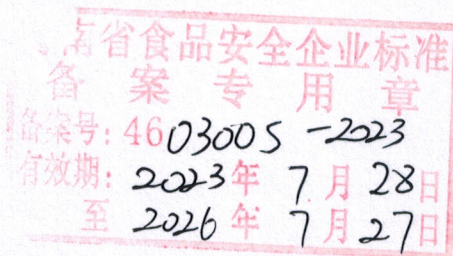 南省食品安全企业标准
备案专用章
备案号: 460300S-2023
有效期: 2023年7月28日
至 2026年7月27日